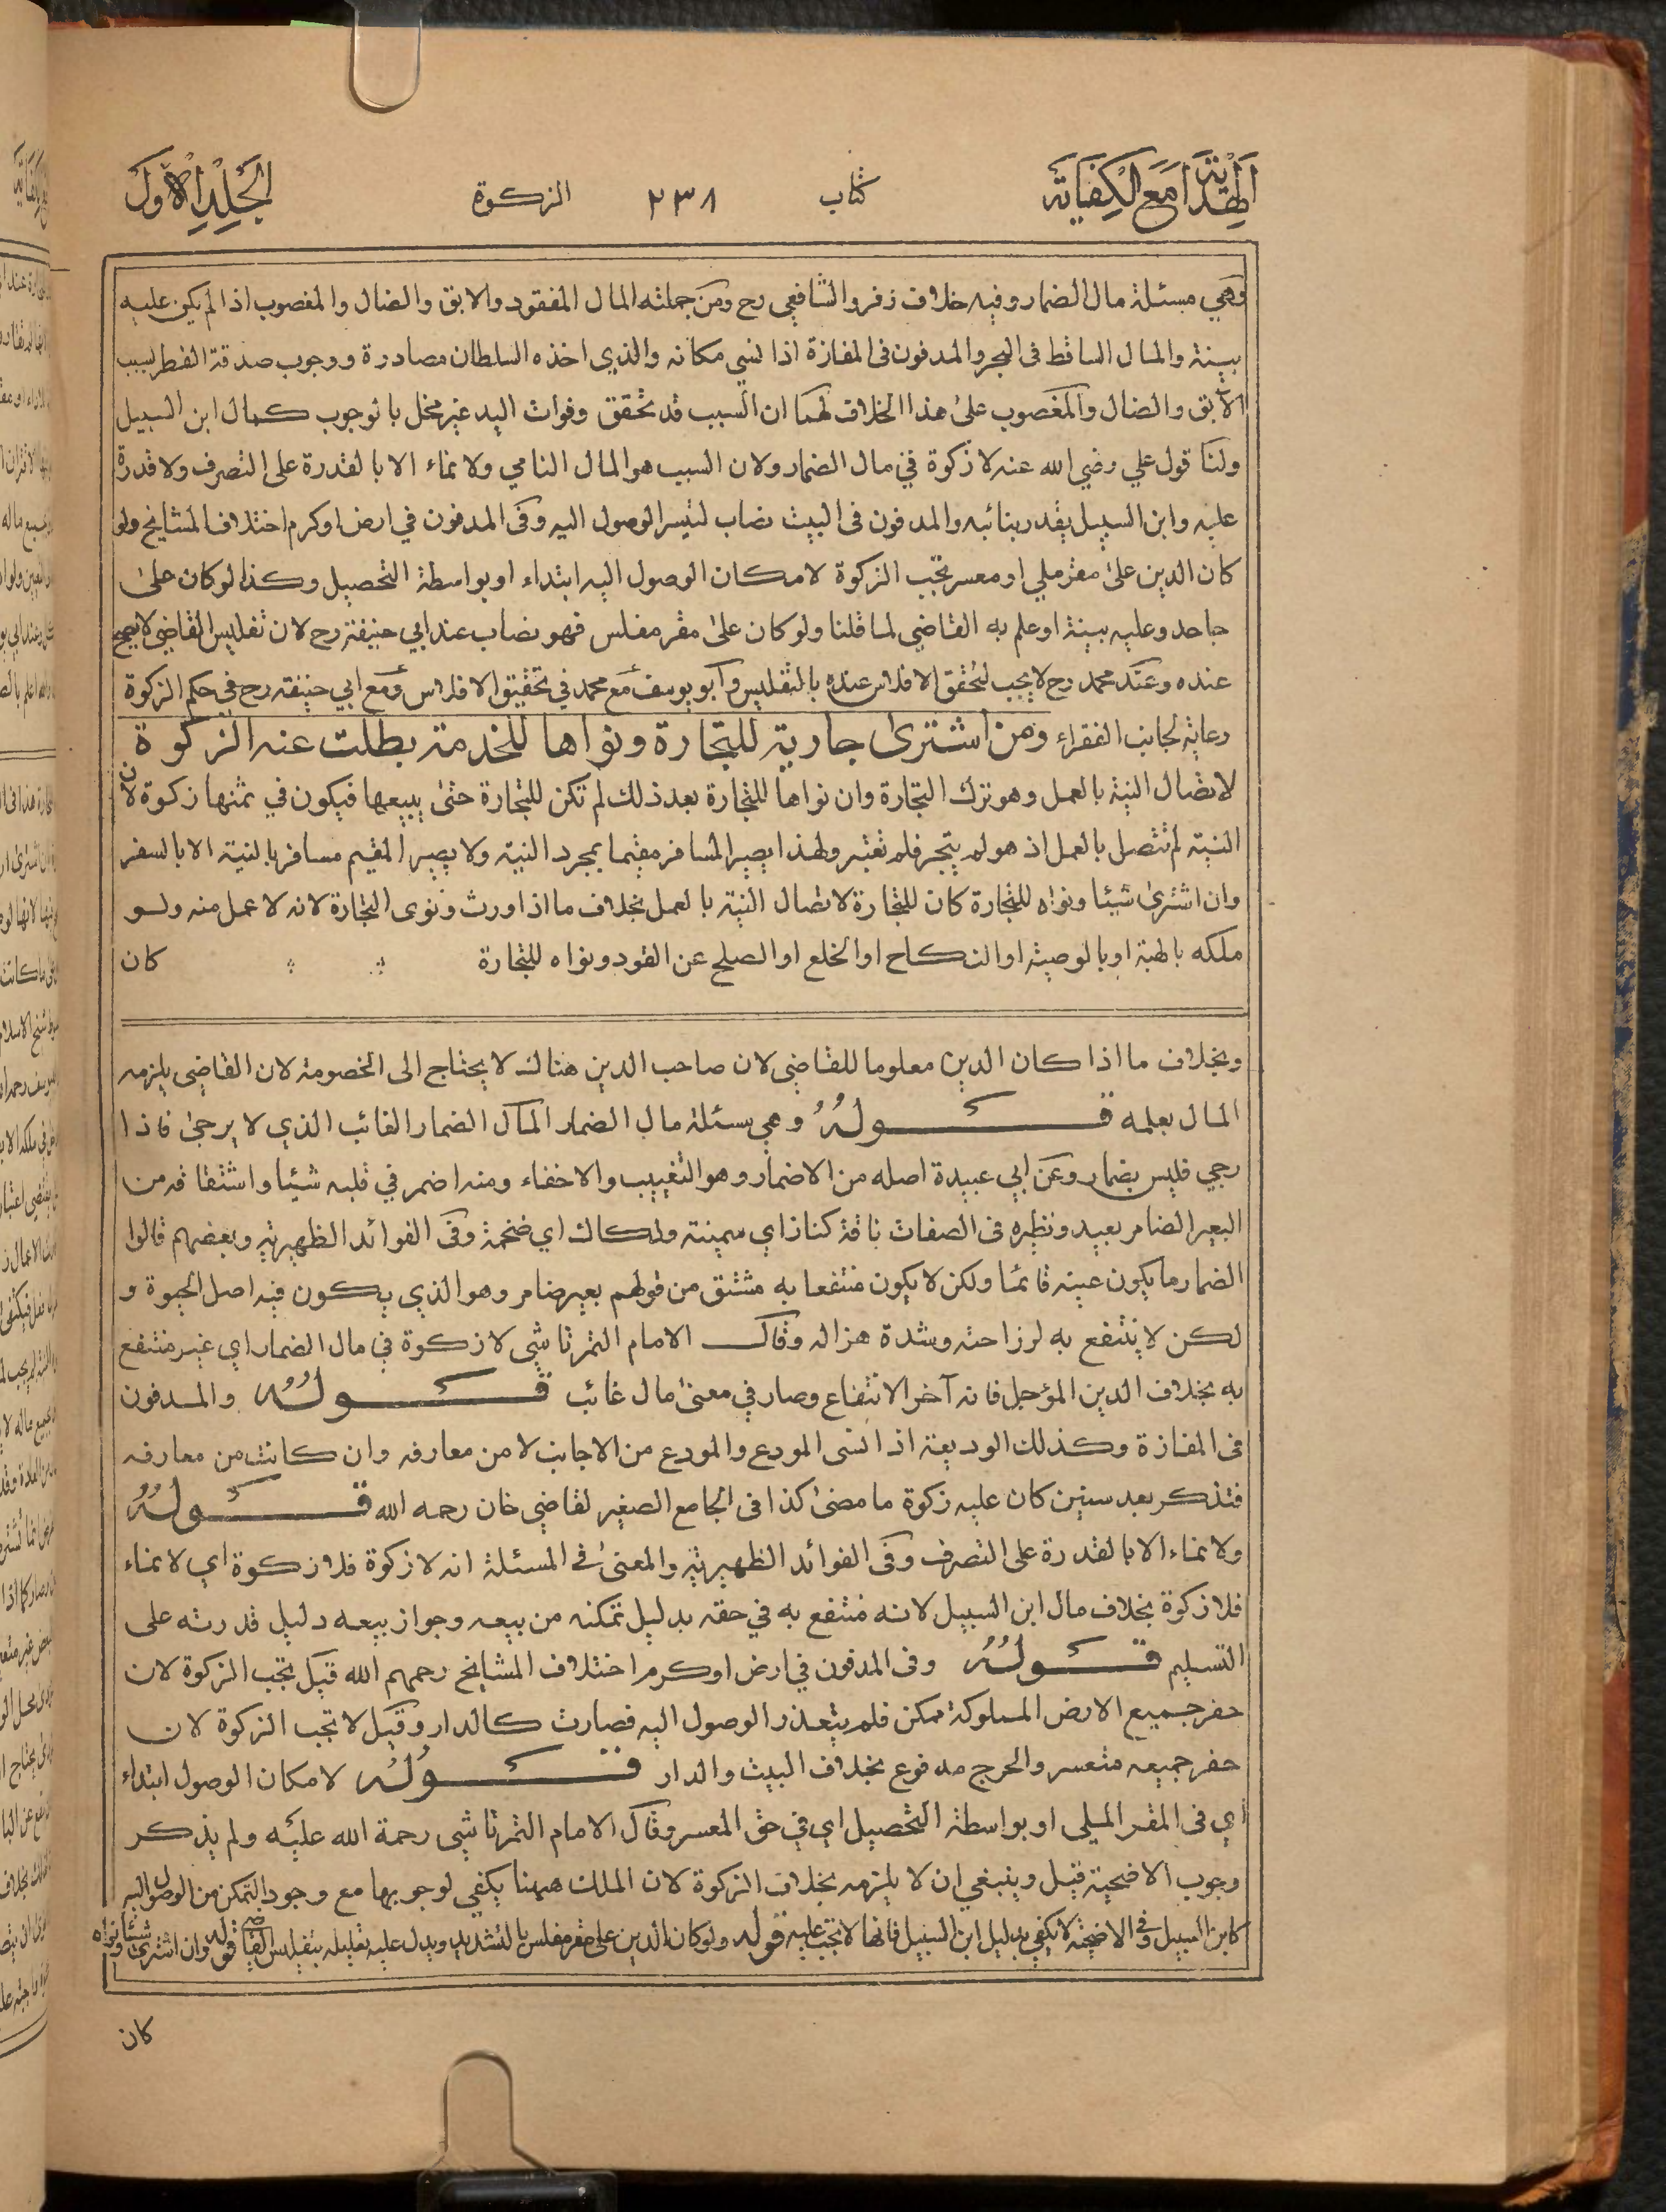 الهداية مع الكفاية
كتاب
٢٣٨
الزكوة
الجلد الاول
وهي مسئلة مال الضمار وفيه خلاف زفر والشافعي رح ومن جملته المال المفقود والابق والضال والمغصوب اذا لم يكن عليه
بينة والمال الساقط في البحر والمدفون في المفازة اذا نسي مكانه والذي اخذه السلطان مصادرة ووجوب صدقة الفطر بسبب
الابق والضال والمغصوب على هذا الخلاف لهما ان السبب قد تحقق وفوات اليد غير مخل بالوجوب كمال ابن السبيل
ولنا قول علي رضي الله عنه لا زكوة في مال الضمار ولان السبب هو المال النامي ولا نماء الا بالقدرة على التصرف ولا قدرة
عليه وابن السبيل يقدر بنائبه والمدفون في البيت نصاب لتيسر الوصول اليه وفي المدفون في ارض او كرم اختلاف المشايخ ولو
كان الدين على مقر ملي او معسر تجب الزكوة لامكان الوصول اليه ابتداء او بواسطة التحصيل وكذا لو كان على
جاحد وعليه بينة او علم به القاضي لما قلنا ولو كان على مقر مفلس فهو نصاب عند ابي حنيفة رح لان تفليس القاضي لا يصح
عنده وعند محمد رح لا يجب لتحقق الافلاس عنده بالتفليس وابو يوسف مع محمد في تحقيق الافلاس ومع ابي حنيفة رح في حكم الزكوة
رعاية لجانب الفقراء ومن اشترى جارية للتجارة ونواها للخدمة بطلت عنه الزكوة
لاتصال النية بالعمل وهو ترك التجارة وان نواها للتجارة بعد ذلك لم تكن للتجارة حتى يبيعها فيكون في ثمنها زكوة لان
النية لم تتصل بالعمل اذ هو لم يتجر فلم تعتبر ولهذا يصير المسافر مقيما بمجرد النية ولا يصير المقيم مسافرا بالنية الا بالسفر
وان اشترى شيئا ونواه للتجارة كان للتجارة لاتصال النية بالعمل بخلاف ما اذا ورث ونوى التجارة لانه لا عمل منه ولو
ملكه بالهبة او بالوصية او النكاح او الخلع او الصلح عن القود ونواه للتجارة كان
وبخلاف ما اذا كان الدين معلوما للقاضي لان صاحب الدين هنالك لا يحتاج الى الخصومة لان القاضي يلزمه
المال بعلمه قوله وهي مسئلة مال الضمار المال الضمار الغائب الذي لا يرجى فاذا
رجي فليس بضمار وعن ابي عبيدة اصله من الاضمار وهو التغييب والاخفاء ومنه اضمر في قلبه شيئا واشتقاقه من
البعير الضامر بعيد ونظيره في الصفات ناقة كناز اي سمينة ولكالك اي ضخمة وفي الفوائد الظهيرية وبعضهم قالوا
الضمار ما يكون عينه قائما ولكن لا يكون منتفعا به مشتق من قولهم بعير ضامر وهو الذي يكون فيه اصل الحيوة و
لكن لا ينتفع به لرزاحته وشدة هزاله وقال الامام التمرتاشي لا زكوة في مال الضمار اي غير منتفع
به بخلاف الدين المؤجل فانه آخر الانتفاع وصار في معنى مال غائب قوله والمدفون
في المفازة وكذلك الوديعة اذا نسي المودع والمودع من الاجانب لا من معارفه وان كانت من معارفه
فتذكر بعد سنين كان عليه زكوة ما مضى كذا في الجامع الصغير لقاضي خان رحمه الله قوله
ولا نماء الا بالقدرة على التصرف وفي الفوائد الظهيرية والمعنى في المسئلة انه لا زكوة فلا زكوة اي لا نماء
فلا زكوة بخلاف مال ابن السبيل لانه منتفع به في حقه بدليل تمكنه من بيعه وجواز بيعه دليل قدرته على
التسليم قوله وفي المدفون في ارض او كرم اختلاف المشايخ رحمهم الله قيل تجب الزكوة لان
حفر جميع الارض المملوكة ممكن فلم يتعذر الوصول اليه فصارت كالدار وقيل لا تجب الزكوة لان
حفر جميعه متعسر والحرج مدفوع بخلاف البيت والدار قوله لامكان الوصول ابتداء
اي في المقر الميلي او بواسطة التحصيل اي في حق المعسر وقال الامام التمرتاشي رحمة الله عليه ولم يذكر
وجوب الاضحية قيل وينبغي ان لا يلزمه بخلاف الزكوة لان الملك ههنا يكفي لوجوبها مع وجود التمكن من الوصول اليه
كابن السبيل وفي الاضحية لا يكفي بدليل ابن السبيل فانها لا تجب عليه قوله ولو كان الدين على مقر مفلس بالتشديد ويدل عليه تعليله بتفليس القاضي قوله وان اشترى شيئا ونواه
كان